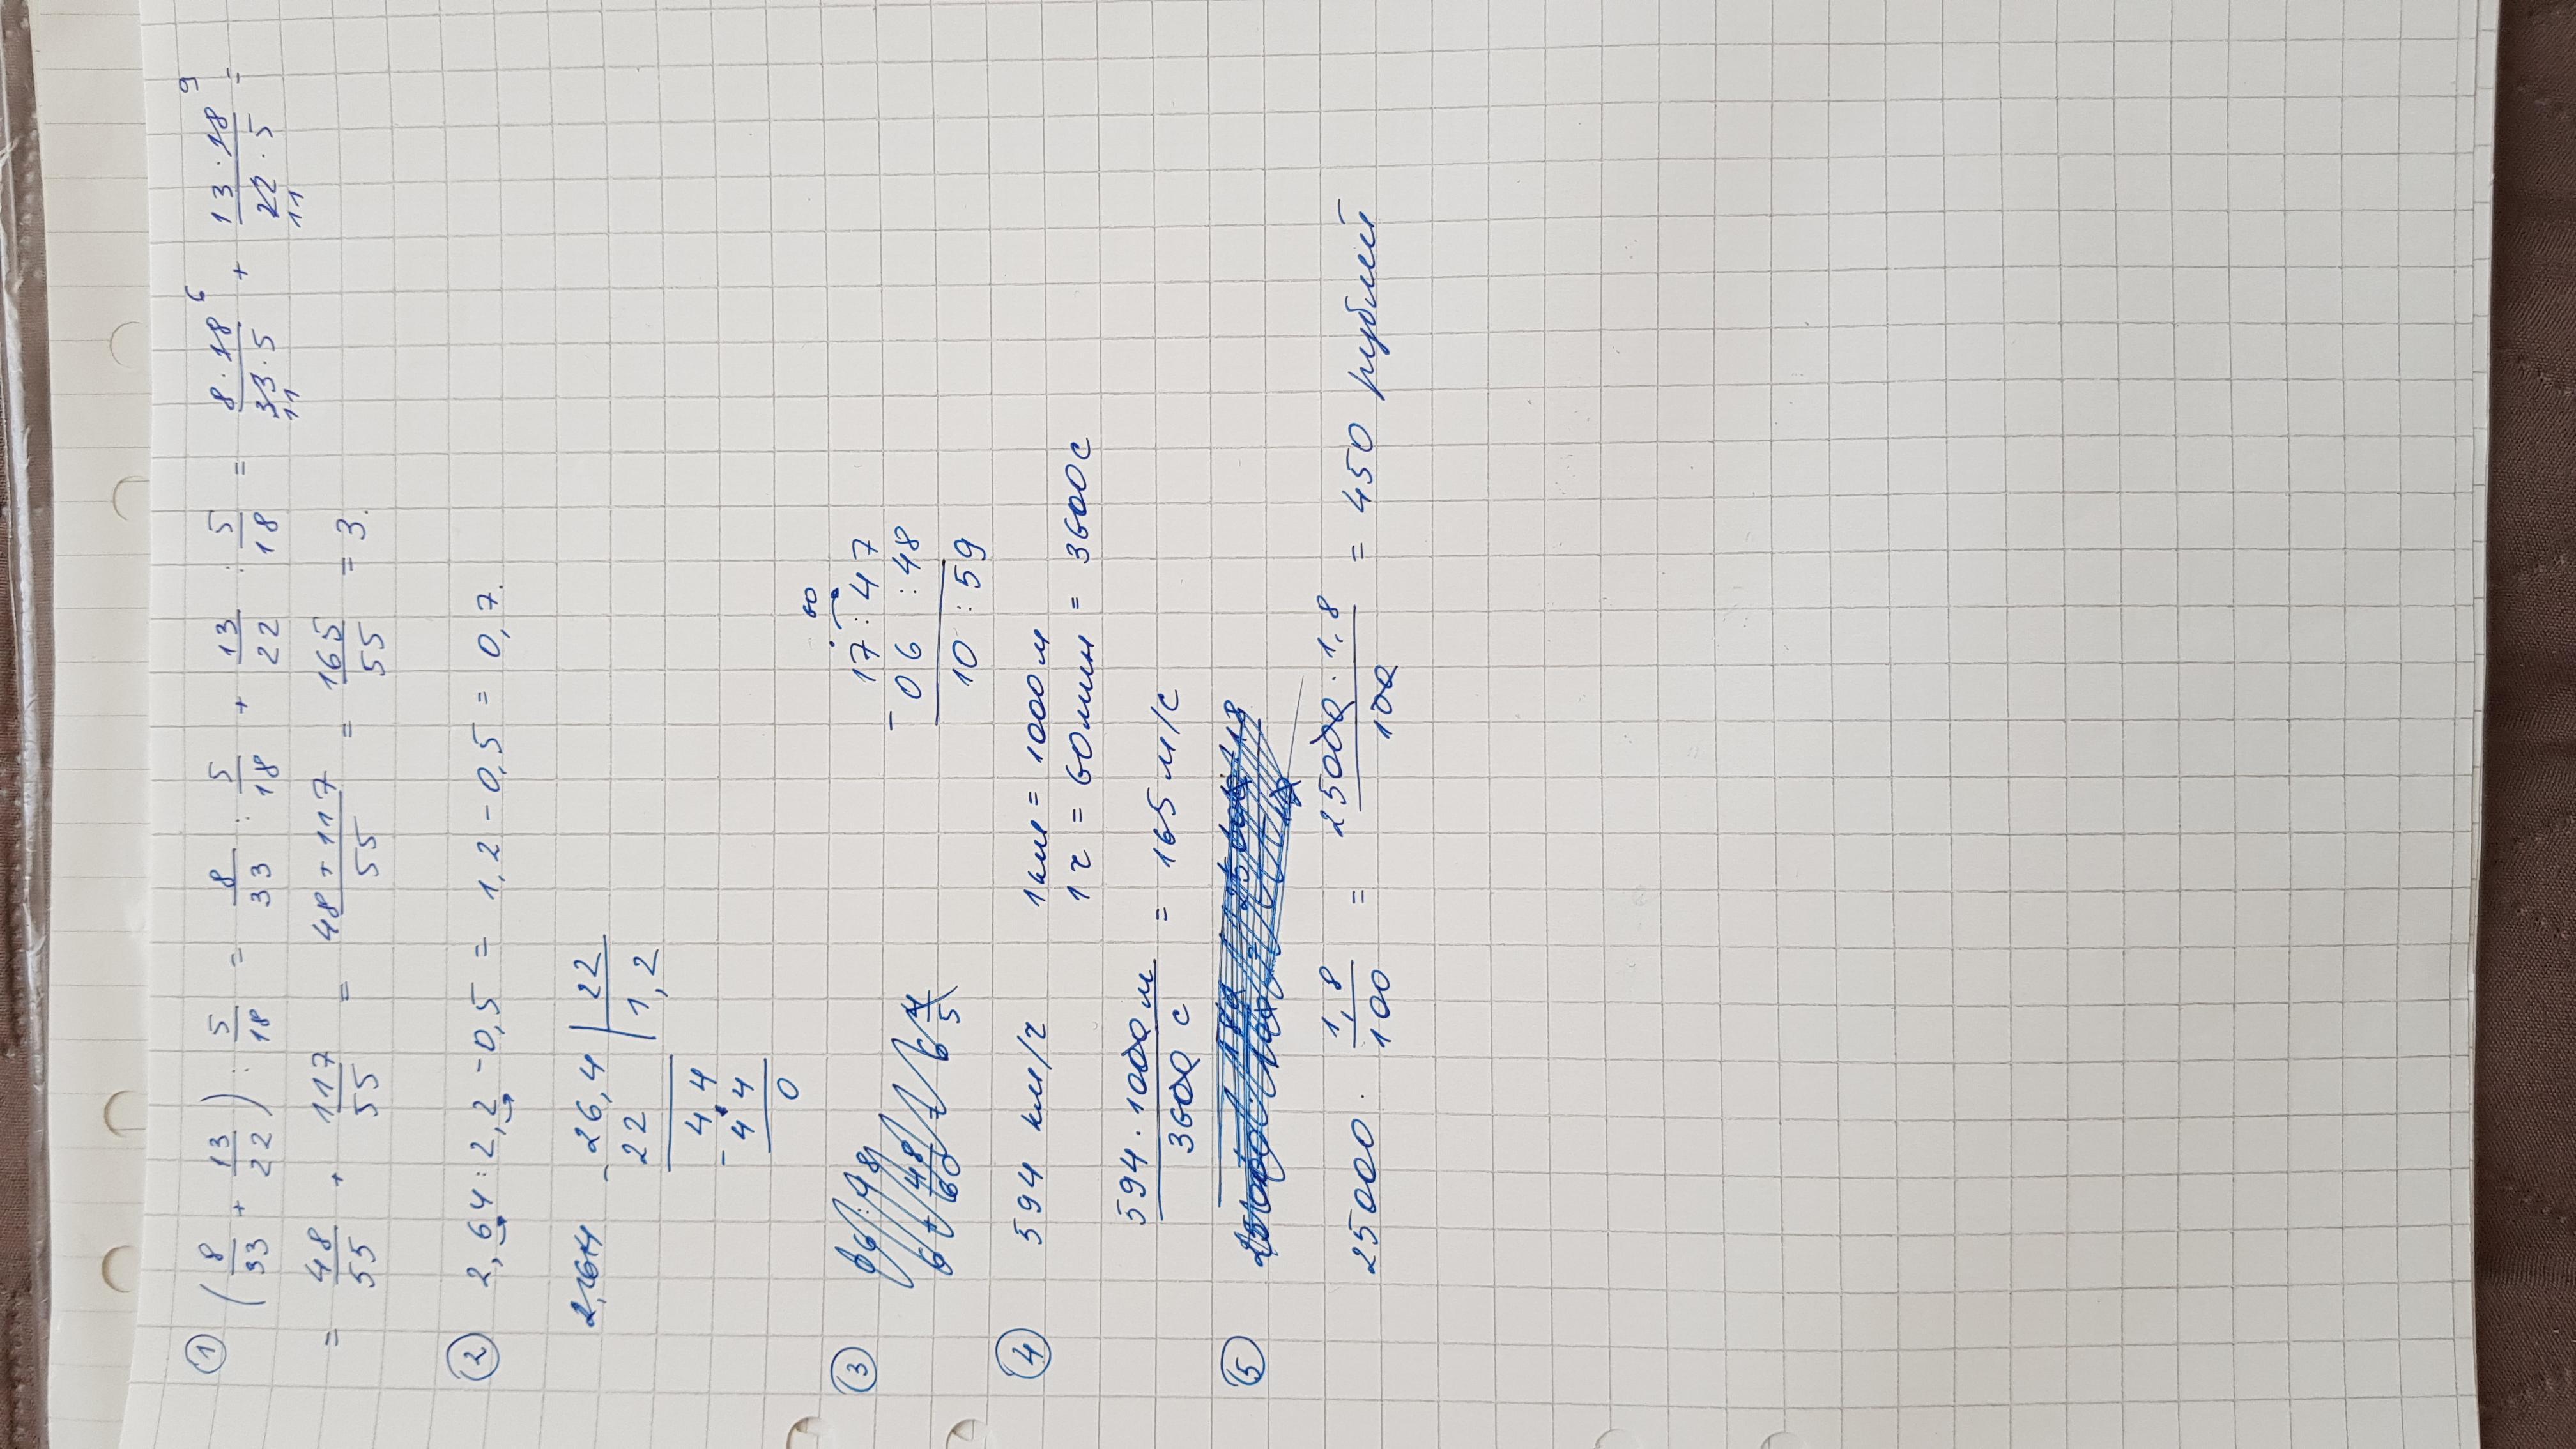 ① (8/33 + 13/22) : 5/18 = 8/33 : 5/18 + 13/22 : 5/18 = 8·18 6/33·5 11 + 13·18 9/22·5 11 =
= 48/55 + 117/55 = 48+117/55 = 165/55 = 3.
② 2,64 : 2,2 - 0,5 = 1,2 - 0,5 = 0,7.
26,4 | 22
22 1,2
4 4
- 4 4
0
③ 17 : 47 60
- 06 : 48
10 : 59
④ 594 км/ч 1км = 1000м
1ч = 60мин = 3600с
594·1000м/3600с = 165 м/с
⑤
25000 · 1,8/100 = 25000·1,8/100 = 450 рублей